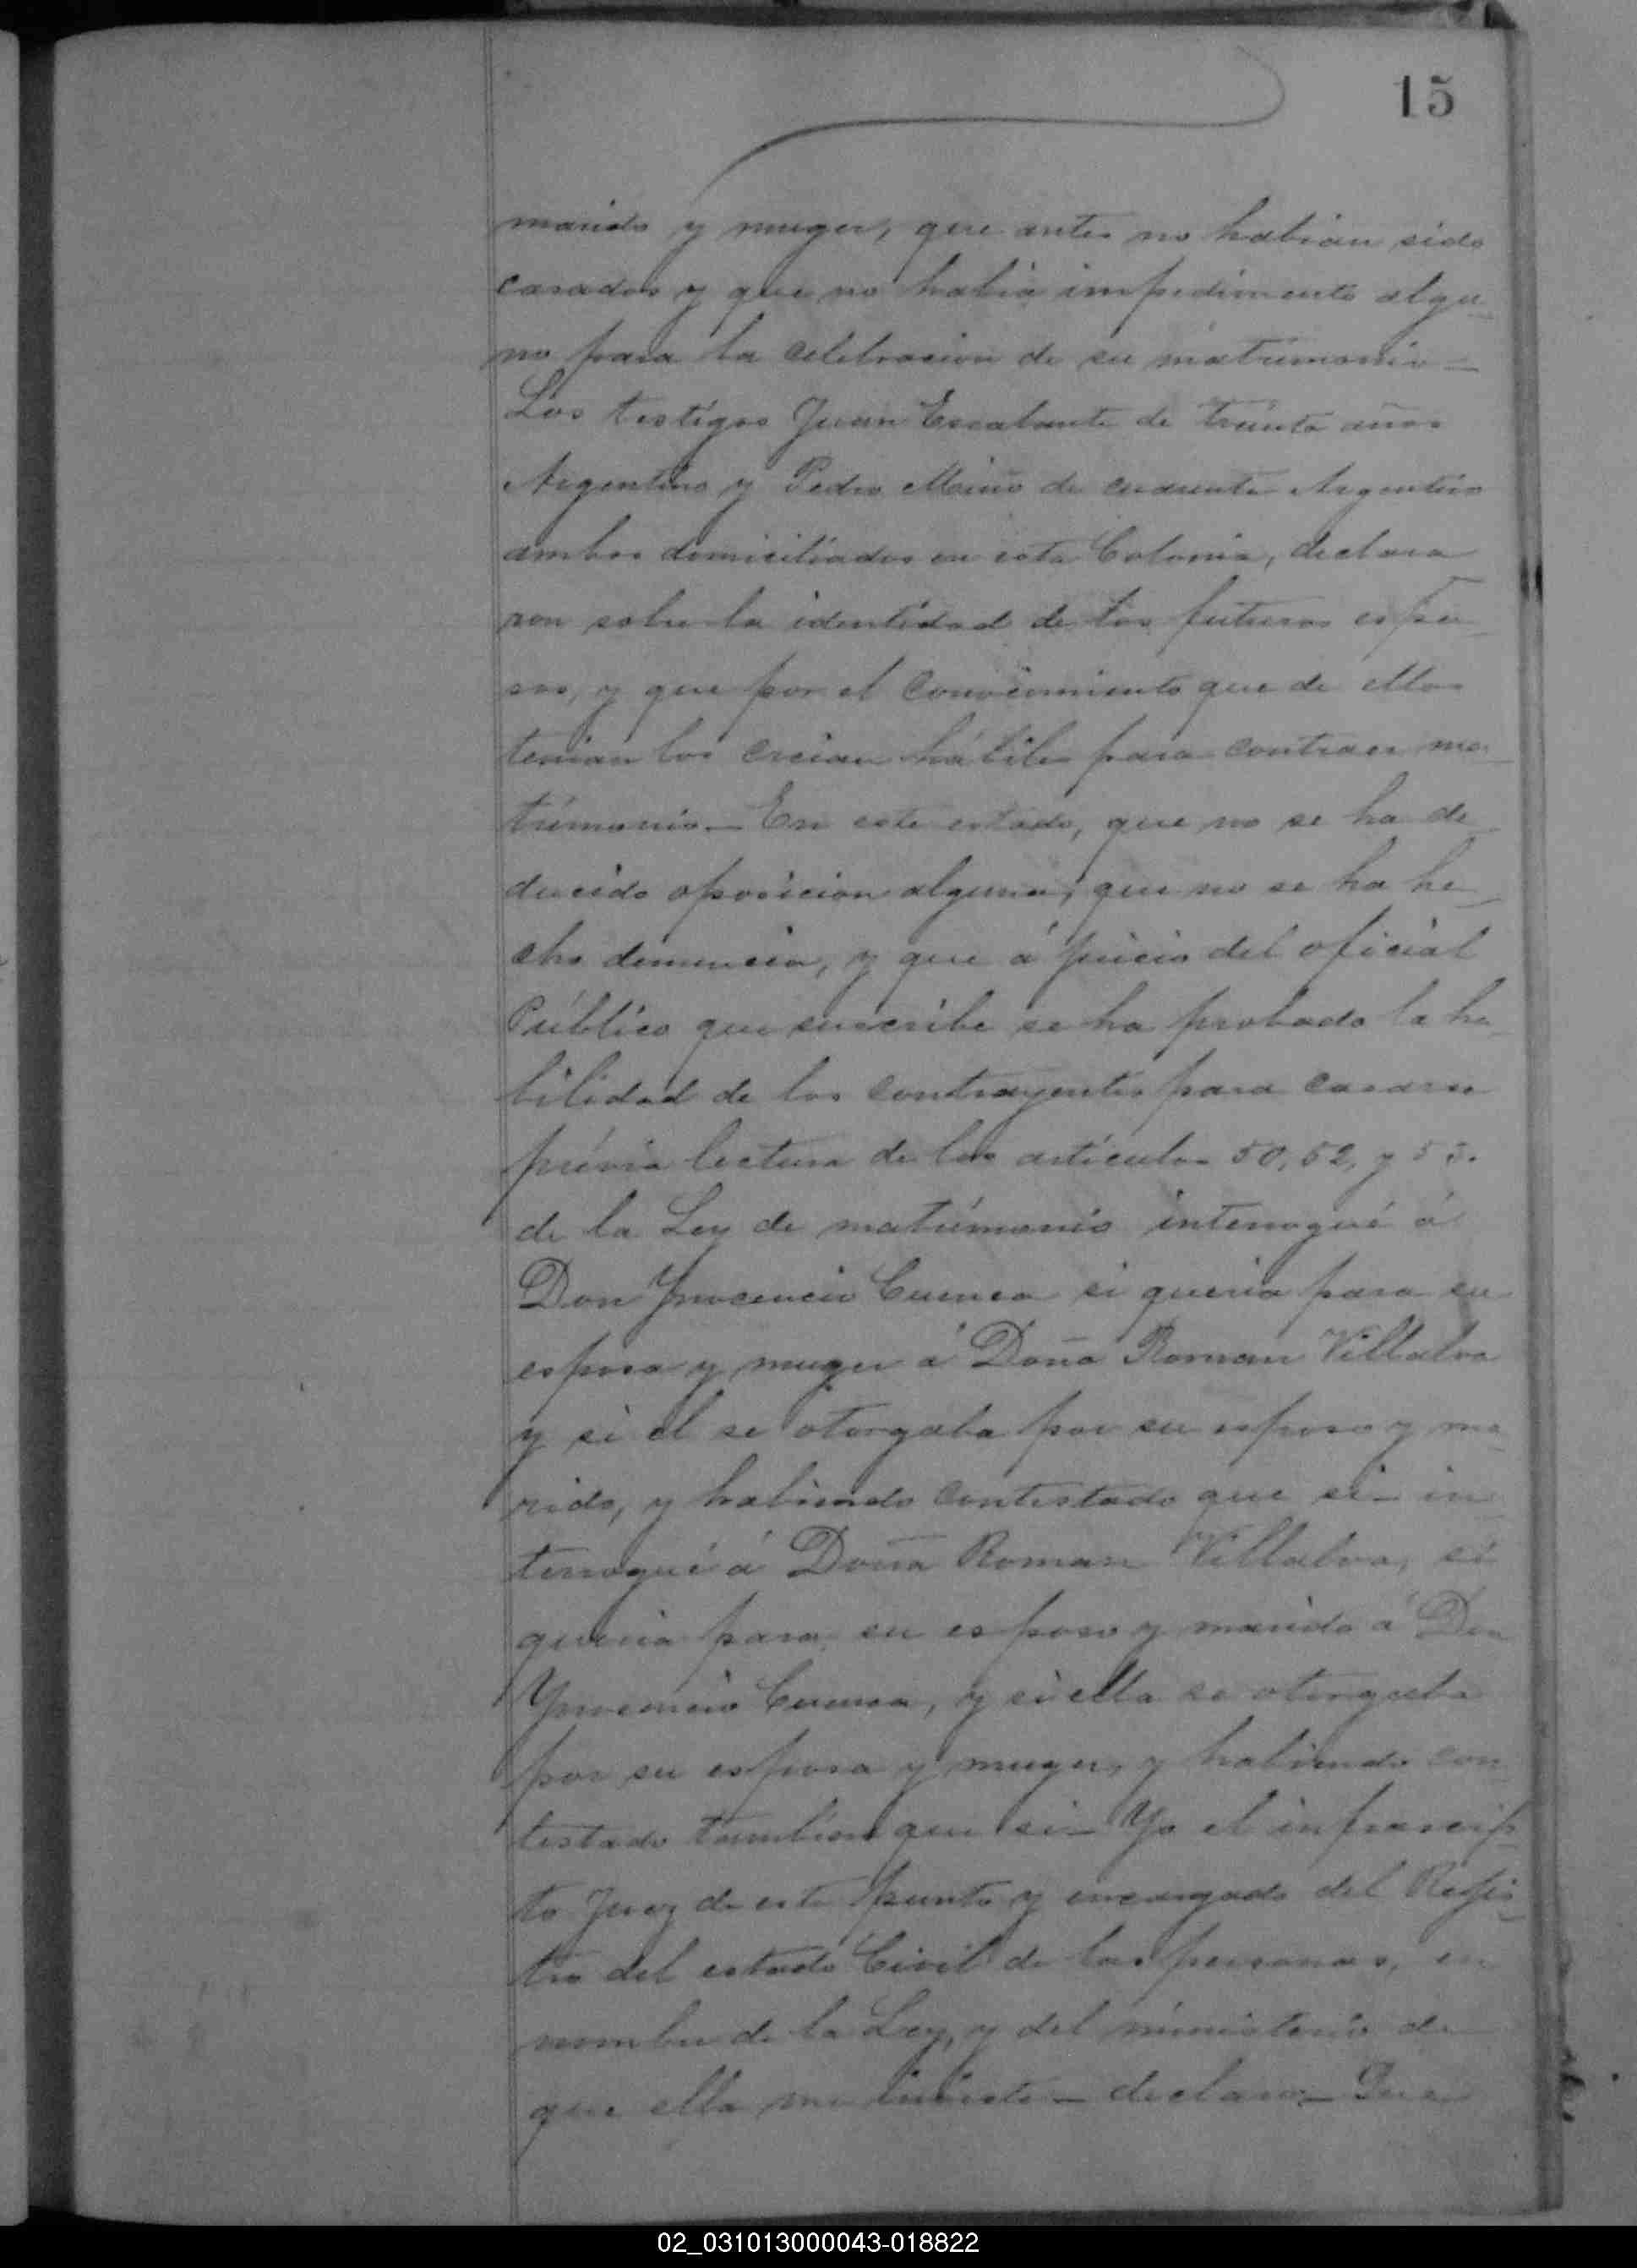 15
marido y muger, que antes no habian sido
casados y que no habia impedimento algu-
no para la celebracion de su matrimonio—
Los testigos Juan Escalante de treinta años
Argentino y Pedro Miño de cuarenta Argentino
ambos domiciliados en esta Colonia, declara
ron sobre la identidad de los futuros espo-
sos, y que por el conocimiento que de ellos
tenian los creian hábiles para contraer ma-
trimonio.— En este estado, que no se ha de-
ducido oposicion alguna, que no se ha he-
cho denuncia, y que á juicio del oficial
Público que suscribe se ha probado la ha-
bilidad de los contrayentes para casarse
prévia lectura de los artículos 50, 52, y 53.
de la Ley de matrimonio interrogué á
Don Ynocencio Cuenca si queria para su
esposa y muger á Doña Roman Villalva
y si él se otorgaba por su esposo y ma-
rido, y habiendo contestado que si— in-
terrogué á Doña Roman Villalva, si
queria para su esposo y marido á Don
Ynocencio Cuenca, y si ella se otorgaba
por su esposa y muger, y habiendo con-
testado tambien que si— Yo el infrascrip-
to Juez de este punto y encargado del Regis-
tro del estado Civil de las personas, en
nombre de la Ley, y del ministerio de
que ella me inviste— declaro— Que
02_031013000043-018822